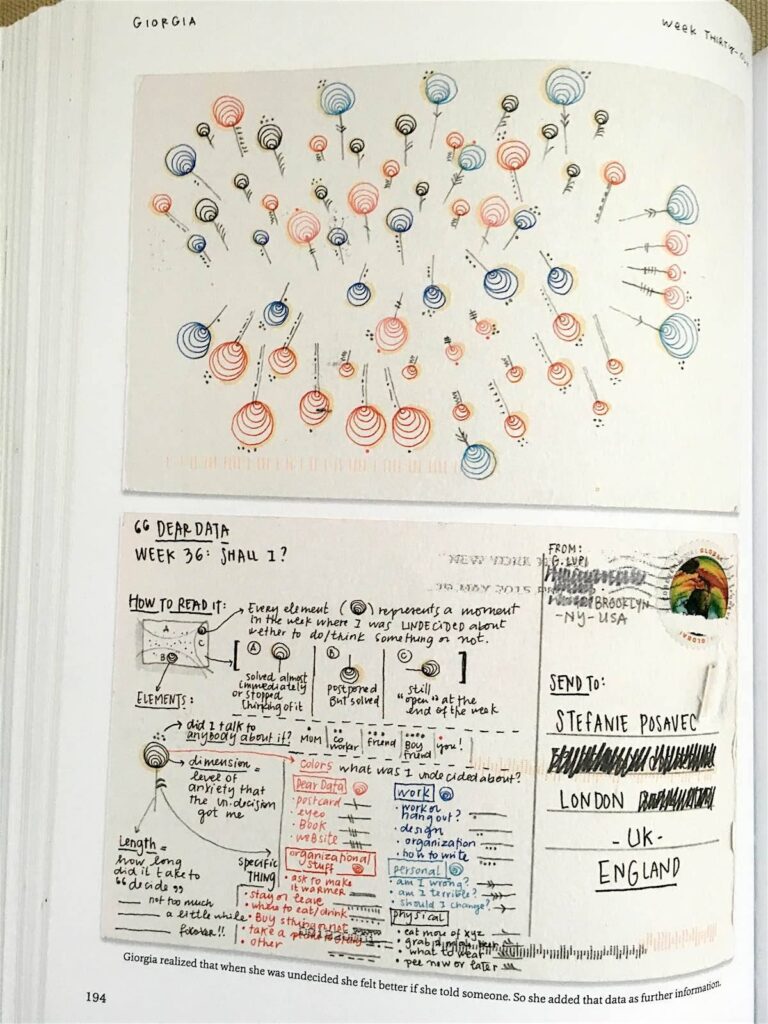 GIORGIA
WEEK THIRTY-
“ DEAR DATA
WEEK 36: SHALL I?
HOW TO READ IT:
EVERY ELEMENT ( ) represents a moment
IN the week where I was UNDECIDED about
wether to do/think something or not.
A
B
C
A
solved almost
immediately
or stopped
thinking of it
B
postponed
But solved
C
still
"open" at the
end of the week
ELEMENTS:
did I talk to
anybody about it?
MOM
CO
worker
friend
Boy
friend
you!
dimension =
level of
anxiety that
the un.decision
got me
Length =
how long
did it take to
“decide”
not too much
a little while
forever!!
specific
THING
colors what was I undecided about?
Dear Data
• postcard
• eyeo
• Book
• website
organizational
stuff
• ask to make
it warmer
• stay or leave
• where to eat/drink
• Buy sthing or not
• take a
• other
work
• work or
hang out?
• design
• organization
• how to write
personal
• am I wrong?
• am I terrible?
• should I change?
physical
• eat more of xyz
• grab
• what to wear
• pee now or later
NEW YORK
MAY 2015
FROM:
G. LUPI
BROOKLYN
-NY-USA
GLOBAL
SEND TO:
STEFANIE POSAVEC
LONDON
-UK-
ENGLAND
Giorgia realized that when she was undecided she felt better if she told someone. So she added that data as further information.
194